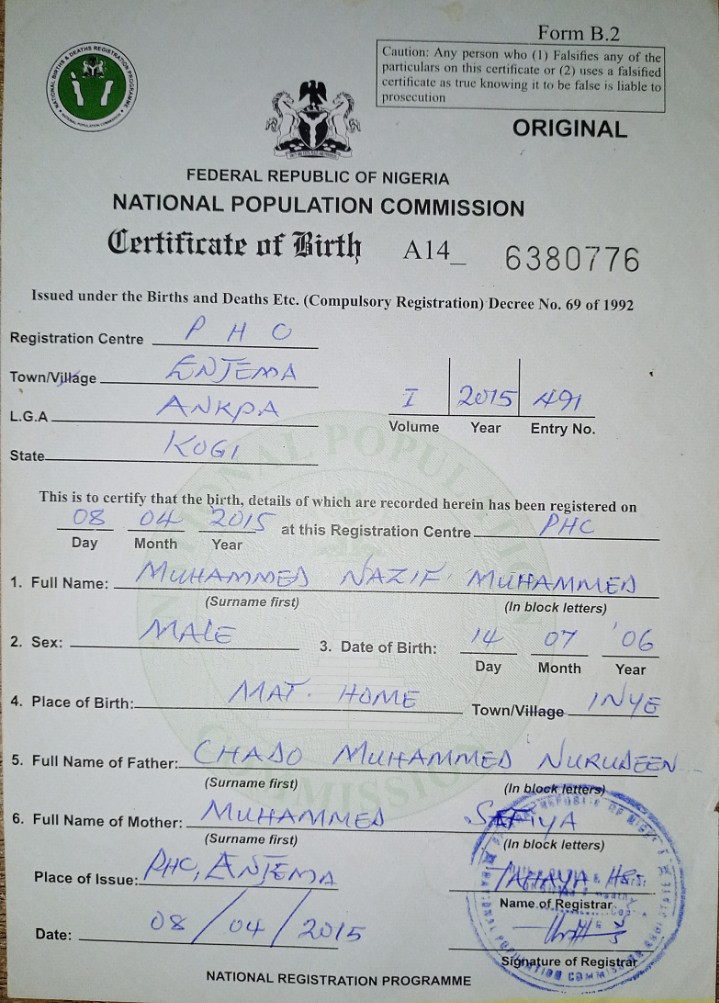 Form B.2
Caution: Any person who (1) Falsifies any of the
particulars on this certificate or (2) uses a falsified
certificate as true knowing it to be false is liable to
prosecution
NATIONAL BIRTHS & DEATHS REGISTRATION PROGRAMME
NATIONAL POPULATION COMMISSION
ORIGINAL
FEDERAL REPUBLIC OF NIGERIA
NATIONAL POPULATION COMMISSION
Certificate of Birth A14_ 6380776
Issued under the Births and Deaths Etc. (Compulsory Registration) Decree No. 69 of 1992
Registration Centre PHC
Town/Village ENJEMA
L.G.A ANKPA
State KOGI
I 2015 491
Volume Year Entry No.
This is to certify that the birth, details of which are recorded herein has been registered on
08 04 2015 at this Registration Centre PHC
Day Month Year
1. Full Name: MUHAMMED NAZIF MUHAMMED
(Surname first) (In block letters)
2. Sex: MALE 3. Date of Birth: 14 07 '06
Day Month Year
4. Place of Birth: MAT. HOME Town/Village INYE
5. Full Name of Father: CHADO MUHAMMED NURUDEEN
(Surname first) (In block letters)
6. Full Name of Mother: MUHAMMED SAFIYA
(Surname first) (In block letters)
Place of Issue: PHC, ANJEMA
Name of Registrar
Date: 08/04/2015
Signature of Registrar
NATIONAL REGISTRATION PROGRAMME